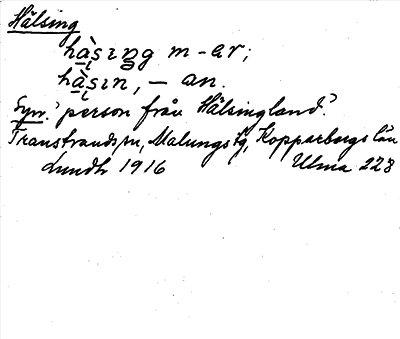 Hälsing
hà̠s̨ıng m -ar;
hà̠s̨ın, – an.
Syn.? person från Hälsingland?
Transtrands sn, Malungs tg, Kopparbergs län
Lundh 1916 Ulma 223